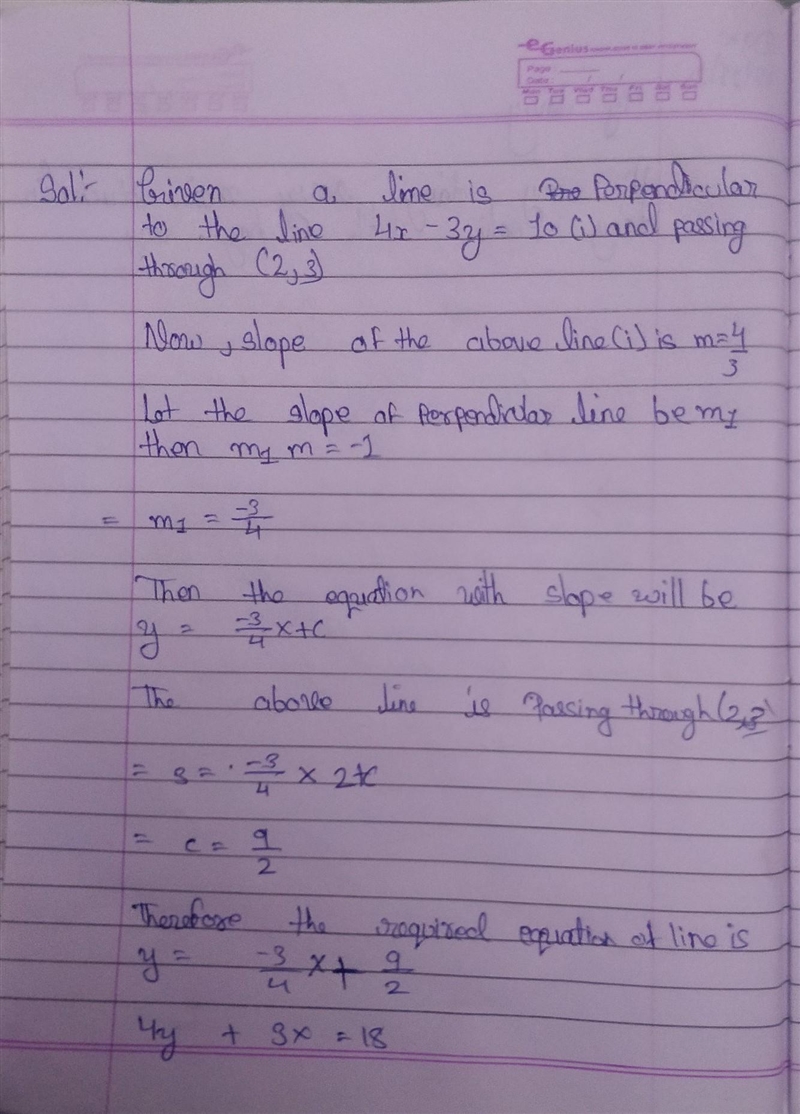 eGenius
Page:
Date: / /
Mon Tue Wed Thu Fri Sat Sun
Sol:- Given a line is Perpendicular
to the line 4x - 3y = 10 (i) and passing
through (2,3)
Now, slope of the above line (i) is m = 4/3
Let the slope of perpendicular line be m1
then m1 m = -1
= m1 = -3/4
Then the equation with slope will be
y = -3/4 x + c
The above line is Passing through (2,3)
= 3 = -3/4 × 2 + c
= c = 9/2
Therefore the required equation of line is
y = -3/4 x + 9/2
4y + 3x = 18